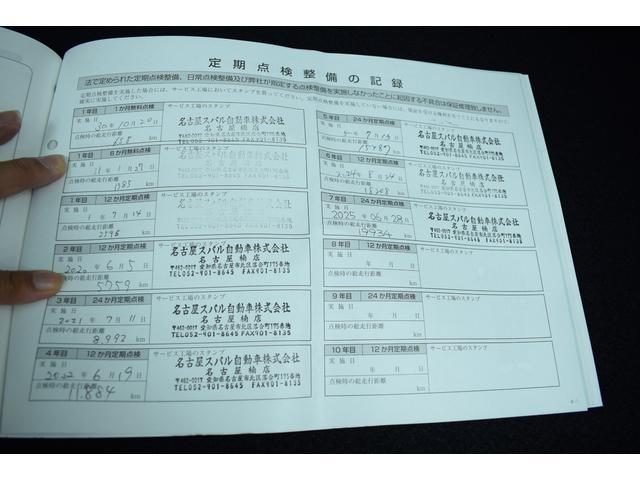 定期点検整備の記録
法で定められた定期点検整備、日常点検整備及び弊社が指定する点検整備を実施しなかったことに起因する不具合は保証修理致しません。
定期点検整備を実施した場合には、サービス工場においてスタンプを買ってください。
確実に実施してください。
1年目 1か月無料点検 サービス工場のスタンプ
実施日
30年10月20日
点検時の総走行距離
658 km
名古屋スバル自動車株式会社
名古屋楠店
1年目 6か月無料点検 サービス工場のスタンプ
実施日
31年1月27日
点検時の総走行距離
1383 km
1年目 12か月定期点検 サービス工場のスタンプ
実施日
1年7月14日
点検時の総走行距離
2398 km
2年目 12か月定期点検 サービス工場のスタンプ
実施日
2020年6月5日
点検時の総走行距離
5759 km
名古屋スバル自動車株式会社
名古屋楠店
〒462-0017 愛知県名古屋市北区落合町175番地
TEL052-901-8645 FAX901-8135
3年目 24か月定期点検 サービス工場のスタンプ
実施日
2021年7月11日
点検時の総走行距離
8,992 km
名古屋スバル自動車株式会社
名古屋楠店
〒462-0017 愛知県名古屋市北区落合町175番地
TEL052-901-8645 FAX901-8135
4年目 12か月定期点検 サービス工場のスタンプ
実施日
2022年6月19日
点検時の総走行距離
11.884 km
名古屋スバル自動車株式会社
名古屋楠店
〒462-0017 愛知県名古屋市北区落合町175番地
TEL052-901-8645 FAX901-8135
5年目 24か月定期点検 サービス工場のスタンプ
実施日
年7月14日
点検時の総走行距離
15787 km
名古屋スバル自動車株式会社
名古屋楠店
6年目 12か月定期点検 サービス工場のスタンプ
実施日
2024年8月24日
点検時の総走行距離
18208 km
名古屋スバル自動車株式会社
名古屋楠店
7年目 24か月定期点検 サービス工場のスタンプ
実施日
2025年06月28日
点検時の総走行距離
19934 km
名古屋スバル自動車株式会社
名古屋楠店
〒462-0017 愛知県名古屋市北区落合町175番地
TEL052-901-8645 FAX901-8135
8年目 12か月定期点検 サービス工場のスタンプ
実施日
年 月 日
点検時の総走行距離
km
9年目 24か月定期点検 サービス工場のスタンプ
実施日
年 月 日
点検時の総走行距離
km
10年目 12か月定期点検 サービス工場のスタンプ
実施日
年 月 日
点検時の総走行距離
km